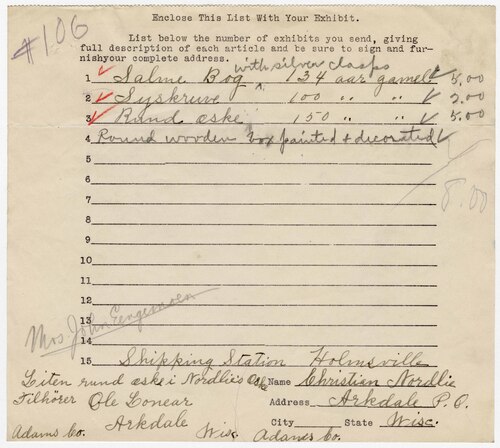 #106
Enclose This List With Your Exhibit.
List below the number of exhibits you send, giving
full description of each article and be sure to sign and fur-
nishyour complete address.
with silver clasps
1 Salme Bog ^ 134 aar gamel ✓ 5.00
2 Syskruve 100 " " ✓ 2.00
3 Rund æske 150 " " ✓ 5.00
4 Round wooden box painted & decorated ✓
5
6
7
8.00
8
9
10
11
12
13
Mrs. John
14
15 Shipping Station Holmsville
Liten rund æske i Nordlie's Æske Name Christian Nordlie
Tilhörer Ole Lonear Address Arkdale P.O.
Arkdale City State Wisc.
Adams Co. Wisc Adams Co.